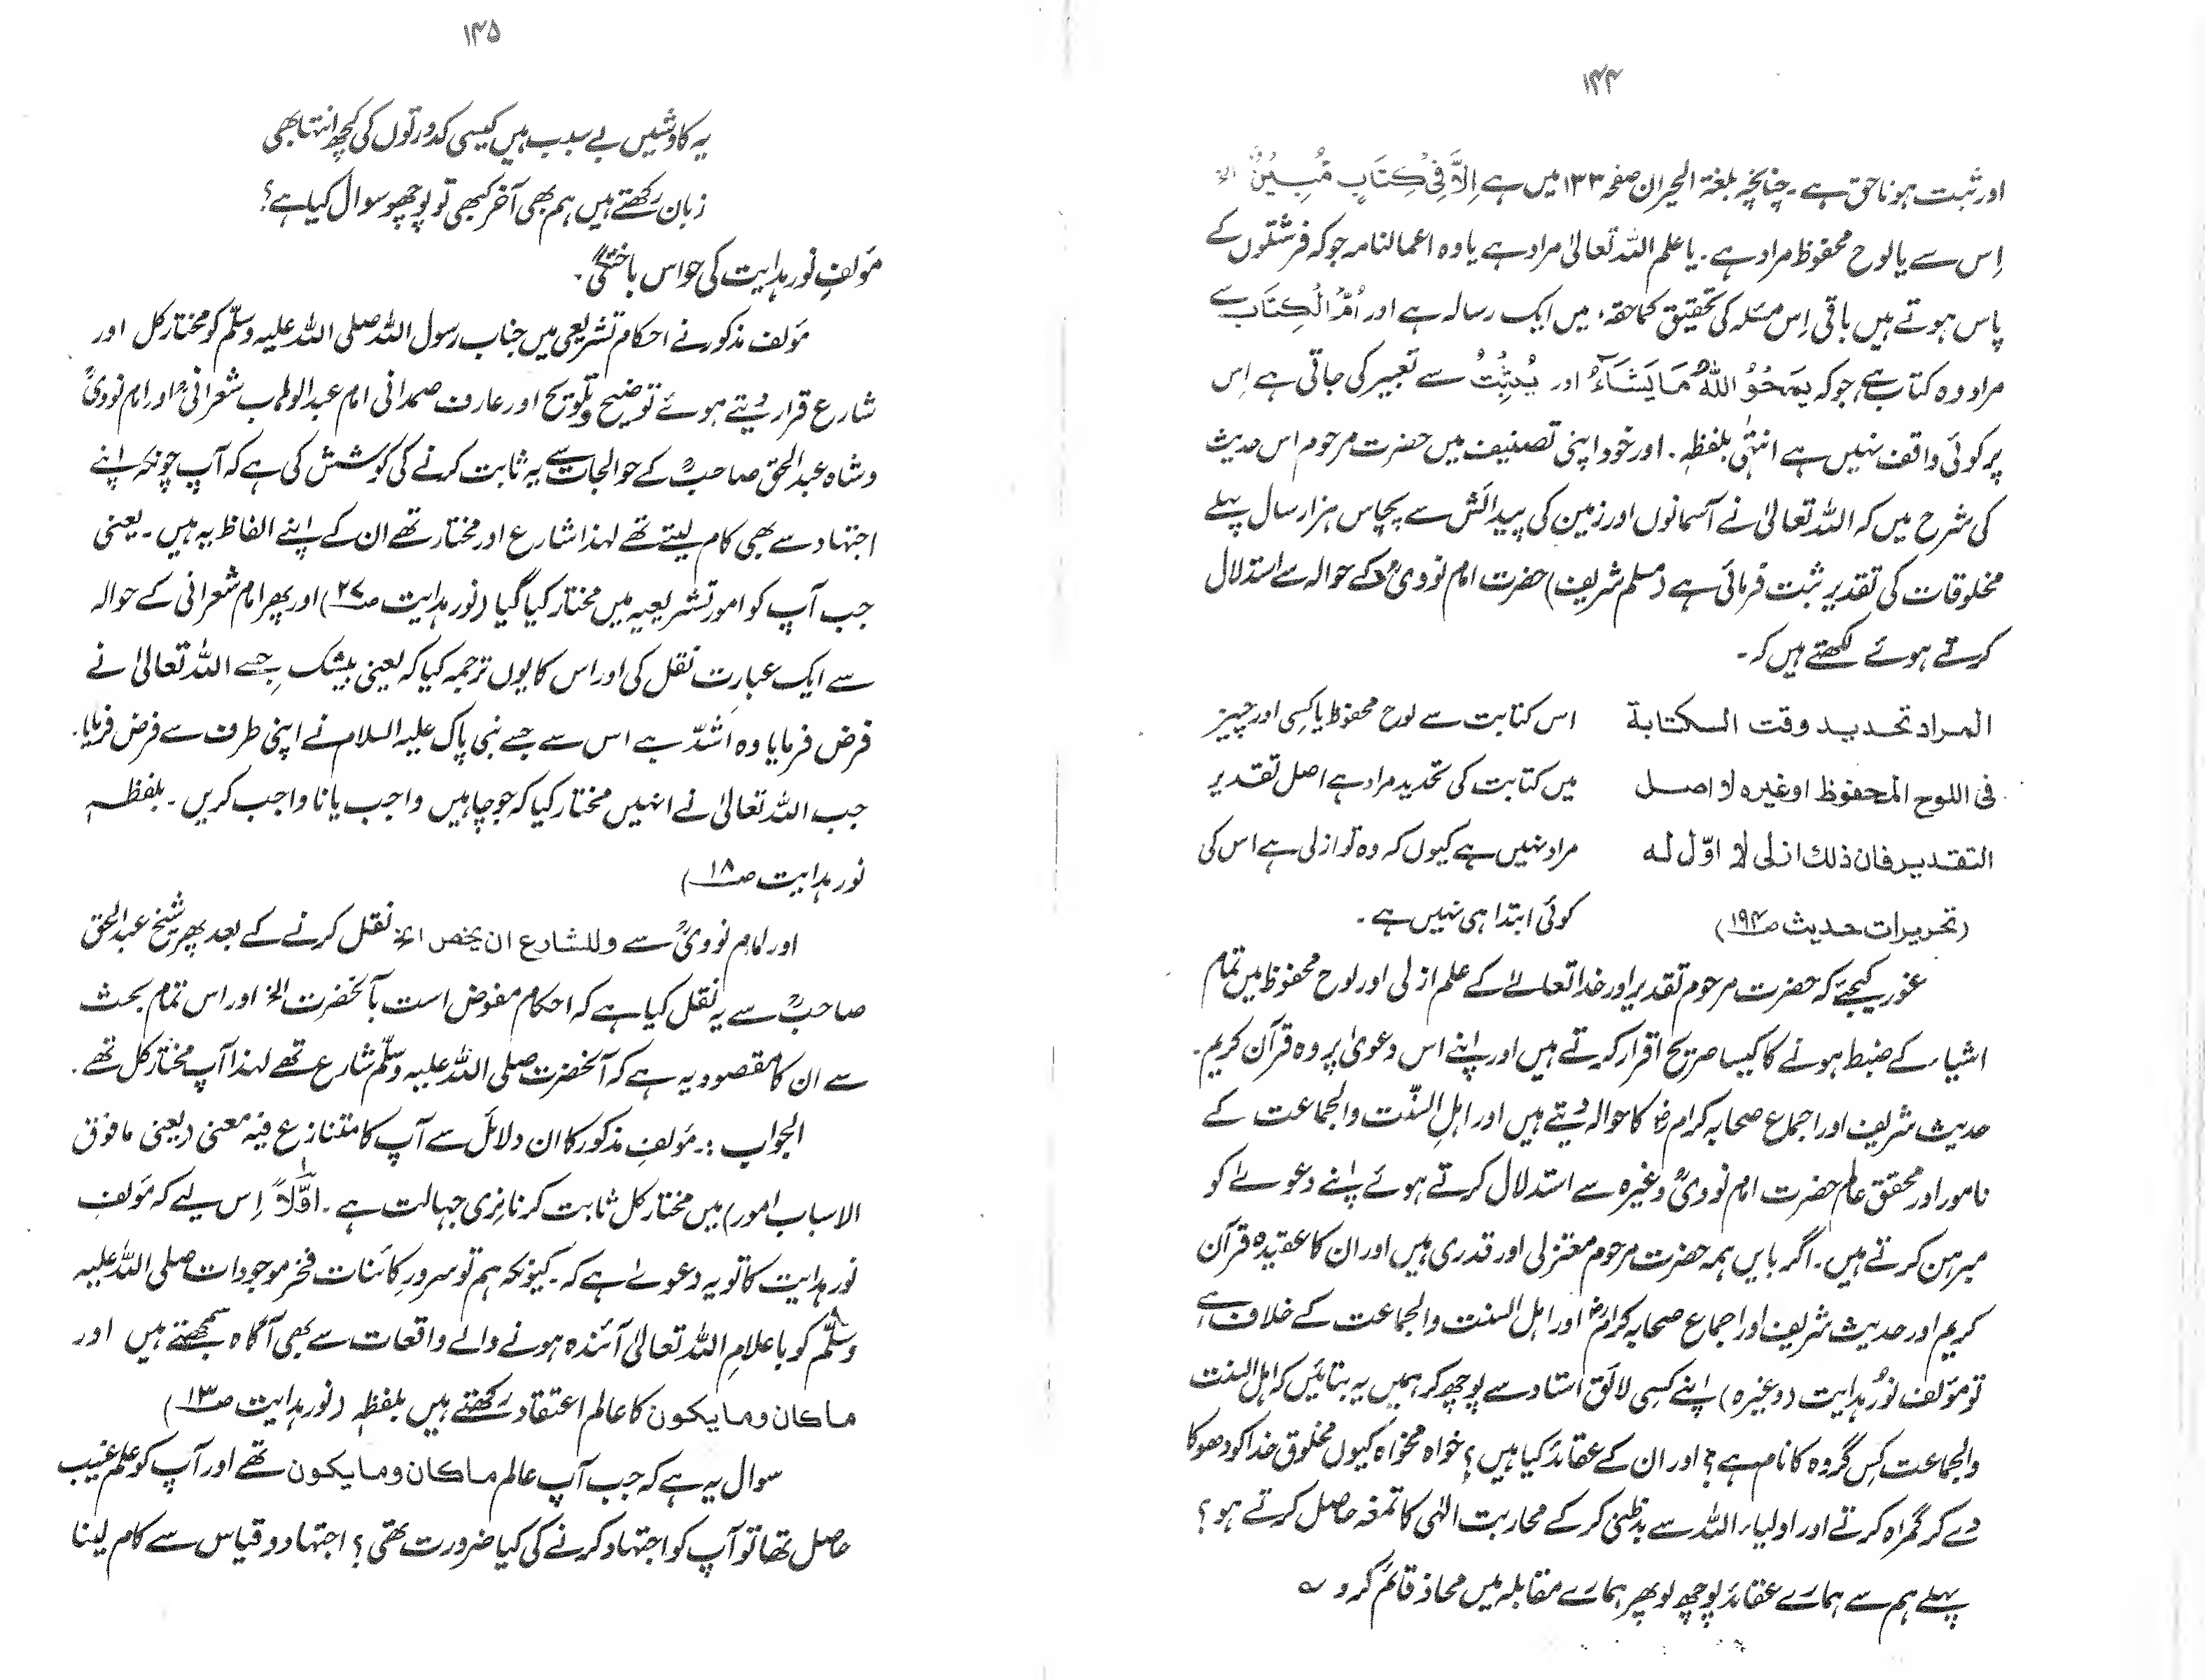 ۱۴۴
اور ثبت ہونا حق ہے۔ چنانچہ بلغۃ الحیران صفحہ ۱۳۳ میں ہے اِلَّا فِیْ کِتَابٍ مُّبِیْنٍ الخ
اِس سے یا لوح محفوظ مراد ہے۔ یا علم اللہ تعالیٰ مراد ہے یا وہ اعمالنامہ جو کہ فرشتوں کے
پاس ہوتے ہیں باقی اِس مسئلہ کی تحقیق کماحقہٗ میں ایک رسالہ ہے اور اُمُّ الْکِتَاب سے
مراد وہ کتاب ہے جو کہ یَمْحُوْ اللّٰہُ مَا یَشَآءُ اور یُثْبِتُ سے تعبیر کی جاتی ہے اِس
پر کوئی واقف نہیں ہے انتہٰی بلفظہٖ۔ اور خود اپنی تصنیف میں حضرت مرحوم اس حدیث
کی شرح میں کہ اللہ تعالیٰ نے آسمانوں اور زمین کی پیدائش سے پچاس ہزار سال پہلے
مخلوقات کی تقدیر ثبت فرمائی ہے (مسلم شریف) حضرت امام نوویؒ کے حوالہ سے استدلال
کرتے ہوئے لکھتے ہیں کہ۔
المراد تحدید وقت الکتابۃ اس کتابت سے لوح محفوظ یا کسی اور چیز
فی اللوح المحفوظ اوغیرہ لا اصل میں کتابت کی تحدید مراد ہے اصل تقدیر
التقدیر فان ذلک ازلی لا اوّل لہ مراد نہیں ہے کیوں کہ وہ تو ازلی ہے اس کی
(تحریرات حدیث صـ۱۹۴) کوئی ابتدا ہی نہیں ہے۔
غور کیجئے کہ حضرت مرحوم تقدیر اور خدا تعالےٰ کے علم ازلی اور لوح محفوظ میں تمام
اشیاء کے ضبط ہونے کا کیسا صریح اقرار کرتے ہیں اور اپنے اس دعویٰ پر وہ قرآن کریم۔
حدیث شریف اور اجماع صحابہ کرامؓ کا حوالہ دیتے ہیں اور اہلِ السنّت والجماعت کے
نامور اور محقق عالم حضرت امام نوویؒ وغیرہ سے استدلال کرتے ہوئے اپنے دعوےٰ کو
مبرہن کرتے ہیں۔ اگر بایں ہمہ حضرت مرحوم معتزلی اور قدری ہیں اور ان کا عقیدہ قرآن
کریم اور حدیث شریف اور اجماع صحابہ کرامؓ اور اہل السنت والجماعت کے خلاف ہے
تو مؤلف نورُ ہدایت (وغیرہ) اپنے کسی لائق استاد سے پوچھ کر ہمیں یہ بتائیں کہ اہل السنت
والجماعت کِس گروہ کا نام ہے؟ اور ان کے عقائد کیا ہیں؟ خواہ مخواہ کیوں مخلوق خدا کو دھوکا
دے کر گمراہ کرتے اور اولیاء اللہ سے بدظنی کر کے محاربت الٰہی کا تمغہ حاصل کرتے ہو؟
پہلے ہم سے ہمارے عقائد پوچھ لو پھر ہمارے مقابلہ میں محاذ قائم کرو ؎
۱۴۵
یہ کاوشیں بے سبب ہیں کیسی کدورتوں کی کچھ انتہا بھی
زبان رکھتے ہیں ہم بھی آخر کبھی تو پوچھو سوال کیا ہے؟
مؤلفِ نور ہدایت کی حواس باختگی۔
مؤلف مذکور نے احکام تشریعی میں جناب رسول اللہ صلی اللہ علیہ وسلّم کو مختارکل اور
شارع قرار دیتے ہوئے توضیح وتلویح اور عارف صمدانی امام عبدالوہاب شعرانیؒ اور امام نوویؒ
وشاہ عبدالحق صاحبؒ کے حوالجات سے یہ ثابت کرنے کی کوشش کی ہے کہ آپ چونکہ اپنے
اجتہاد سے بھی کام لیتے تھے لہٰذا شارع اور مختار تھے ان کے اپنے الفاظ یہ ہیں۔ یعنی
جب آپ کو امور تشریعیہ میں مختار کیا گیا (نور ہدایت صـ۲۷) اور پھر امام شعرانی کے حوالہ
سے ایک عبارت نقل کی اور اس کا یوں ترجمہ کیا کہ یعنی بیشک جِسے اللہ تعالیٰ نے
فرض فرمایا وہ اَشَدّ ہے اس سے جسے نبی پاک علیہ السلام نے اپنی طرف سے فرض فرمایا۔
جب اللہ تعالیٰ نے انہیں مختار کیا کہ جو چاہیں واجب یا ناواجب کریں۔ بلفظہٖ
نور ہدایت صـ۱۸)
اور امام نوویؒ سے وللشارع ان یخص الخ نقل کرنے کے بعد پھر شیخ عبدالحق
صاحبؒ سے یہ نقل کیا ہے کہ احکام مفوض است بآنحضرت الخ اور اس تمام بحث
سے ان کا مقصود یہ ہے کہ آنحضرت صلی اللہ علیہ وسلّم شارع تھے لہذا آپ مختارکل تھے۔
الجواب :۔ مؤلفِ مذکور کا ان دلائل سے آپ کا متنازع فیہ معنی (یعنی مافوق
الاسباب امور) میں مختارکل ثابت کرنا نِری جہالت ہے۔ اوّلاً اِس لیے کہ مؤلف
نور ہدایت کا تو یہ دعوےٰ ہے کہ۔ کیونکہ ہم تو سرورِ کائنات فخر موجودات صلی اللہ علیہ
وسلّم کو باعلامِ اللہ تعالیٰ آئندہ ہونے والے واقعات سے بھی آگاہ سمجھتے ہیں اور
ماکان وما یکون کا عالم اعتقاد رکھتے ہیں بلفظہٖ (نور ہدایت صـ۱۳)
سوال یہ ہے کہ جب آپ عالم ماکان وما یکون تھے اور آپ کو علم غیب
حاصل تھا تو آپ کو اجتہاد کرنے کی کیا ضرورت تھی؟ اجتہاد و قیاس سے کام لینا